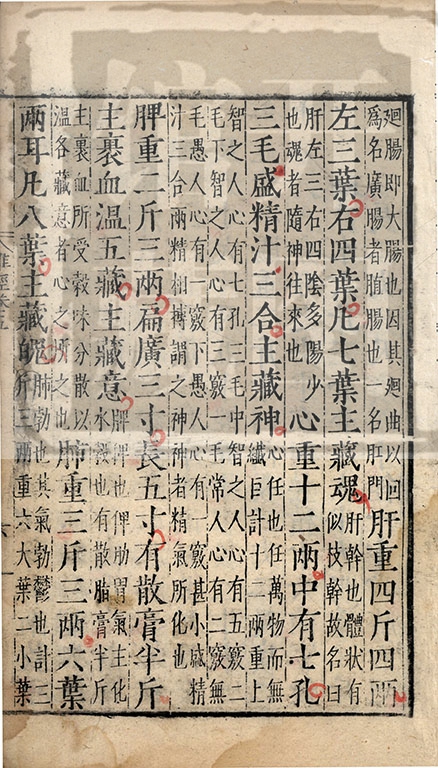 廻腸即大腸也因其廻曲以回
爲名廣腸者腯腸也一名肛門
肝重四斤四兩
左三葉右四葉凡七葉主藏魂
肝幹也體狀有
似枝幹故名曰
肝左三右四陰多陽少
也魂者隨神往來也
心重十二兩中有七孔
三毛盛精汁三合主藏神
心任也任萬物而無
纎巨計十二兩重上
智之人心有七孔三毛中智之人心有五竅二
毛下智之人心有三竅一毛常人心有二竅無
毛愚人心有一竅下愚人心有一竅甚小盛精
汁三合兩精相搏謂之神神者精氣所化也
脾重二斤三兩扁廣三寸長五寸有散膏半斤
主裹血溫五藏主藏意
脾俾也俾助胃氣主化
水榖也有散脂膏半斤
主裹血所受榖味分散以
溫各藏意者心之所之也
肺重三斤三兩六葉
兩耳凡八葉主藏魄
肺勃也其氣勃鬱也計三
斤三兩重六大葉二小葉